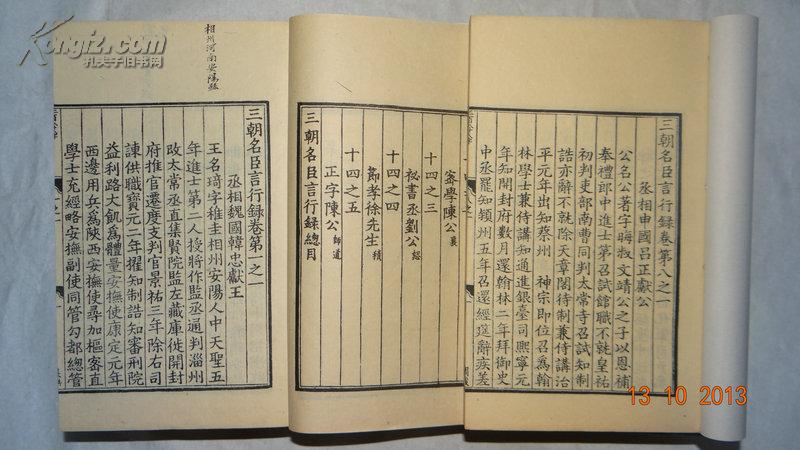 三朝名臣言行録卷第八之一
丞相申國呂正獻公
公名公著字晦叔文靖公之子以恩補
奉禮郎中進士第召試館職不就皇祐
初判吏部南曹同判太常寺召試知制
誥亦辭不就除天章閣待制兼侍講治
平元年出知蔡州 神宗即位召爲翰
林學士兼侍講知通進銀臺司熙寧元
年知開封府數月還翰林二年拜御史
中丞罷知潁州五年召還經筵辭疾差
十四之三
審學陳公襄
十四之四
祕書丞劉公恕
十四之五
節孝徐先生積
正字陳公師道
三朝名臣言行録總目
相州河南安陽縣
三朝名臣言行録卷第一之一
丞相魏國韓忠獻王
王名琦字稚圭相州安陽人中天聖五
年進士第二人授將作監丞通判淄州
改太常丞直集賢院監左藏庫徙開封
府推官遷度支判官景祐三年除右司
諫供職寶元二年擢知制誥知審刑院
益利路大飢爲體量安撫使康定元年
西邊用兵爲陝西安撫使尋加樞密直
學士充經略安撫副使同管勾都總管
Kongfz.com
孔夫子旧书网
13 10 2013